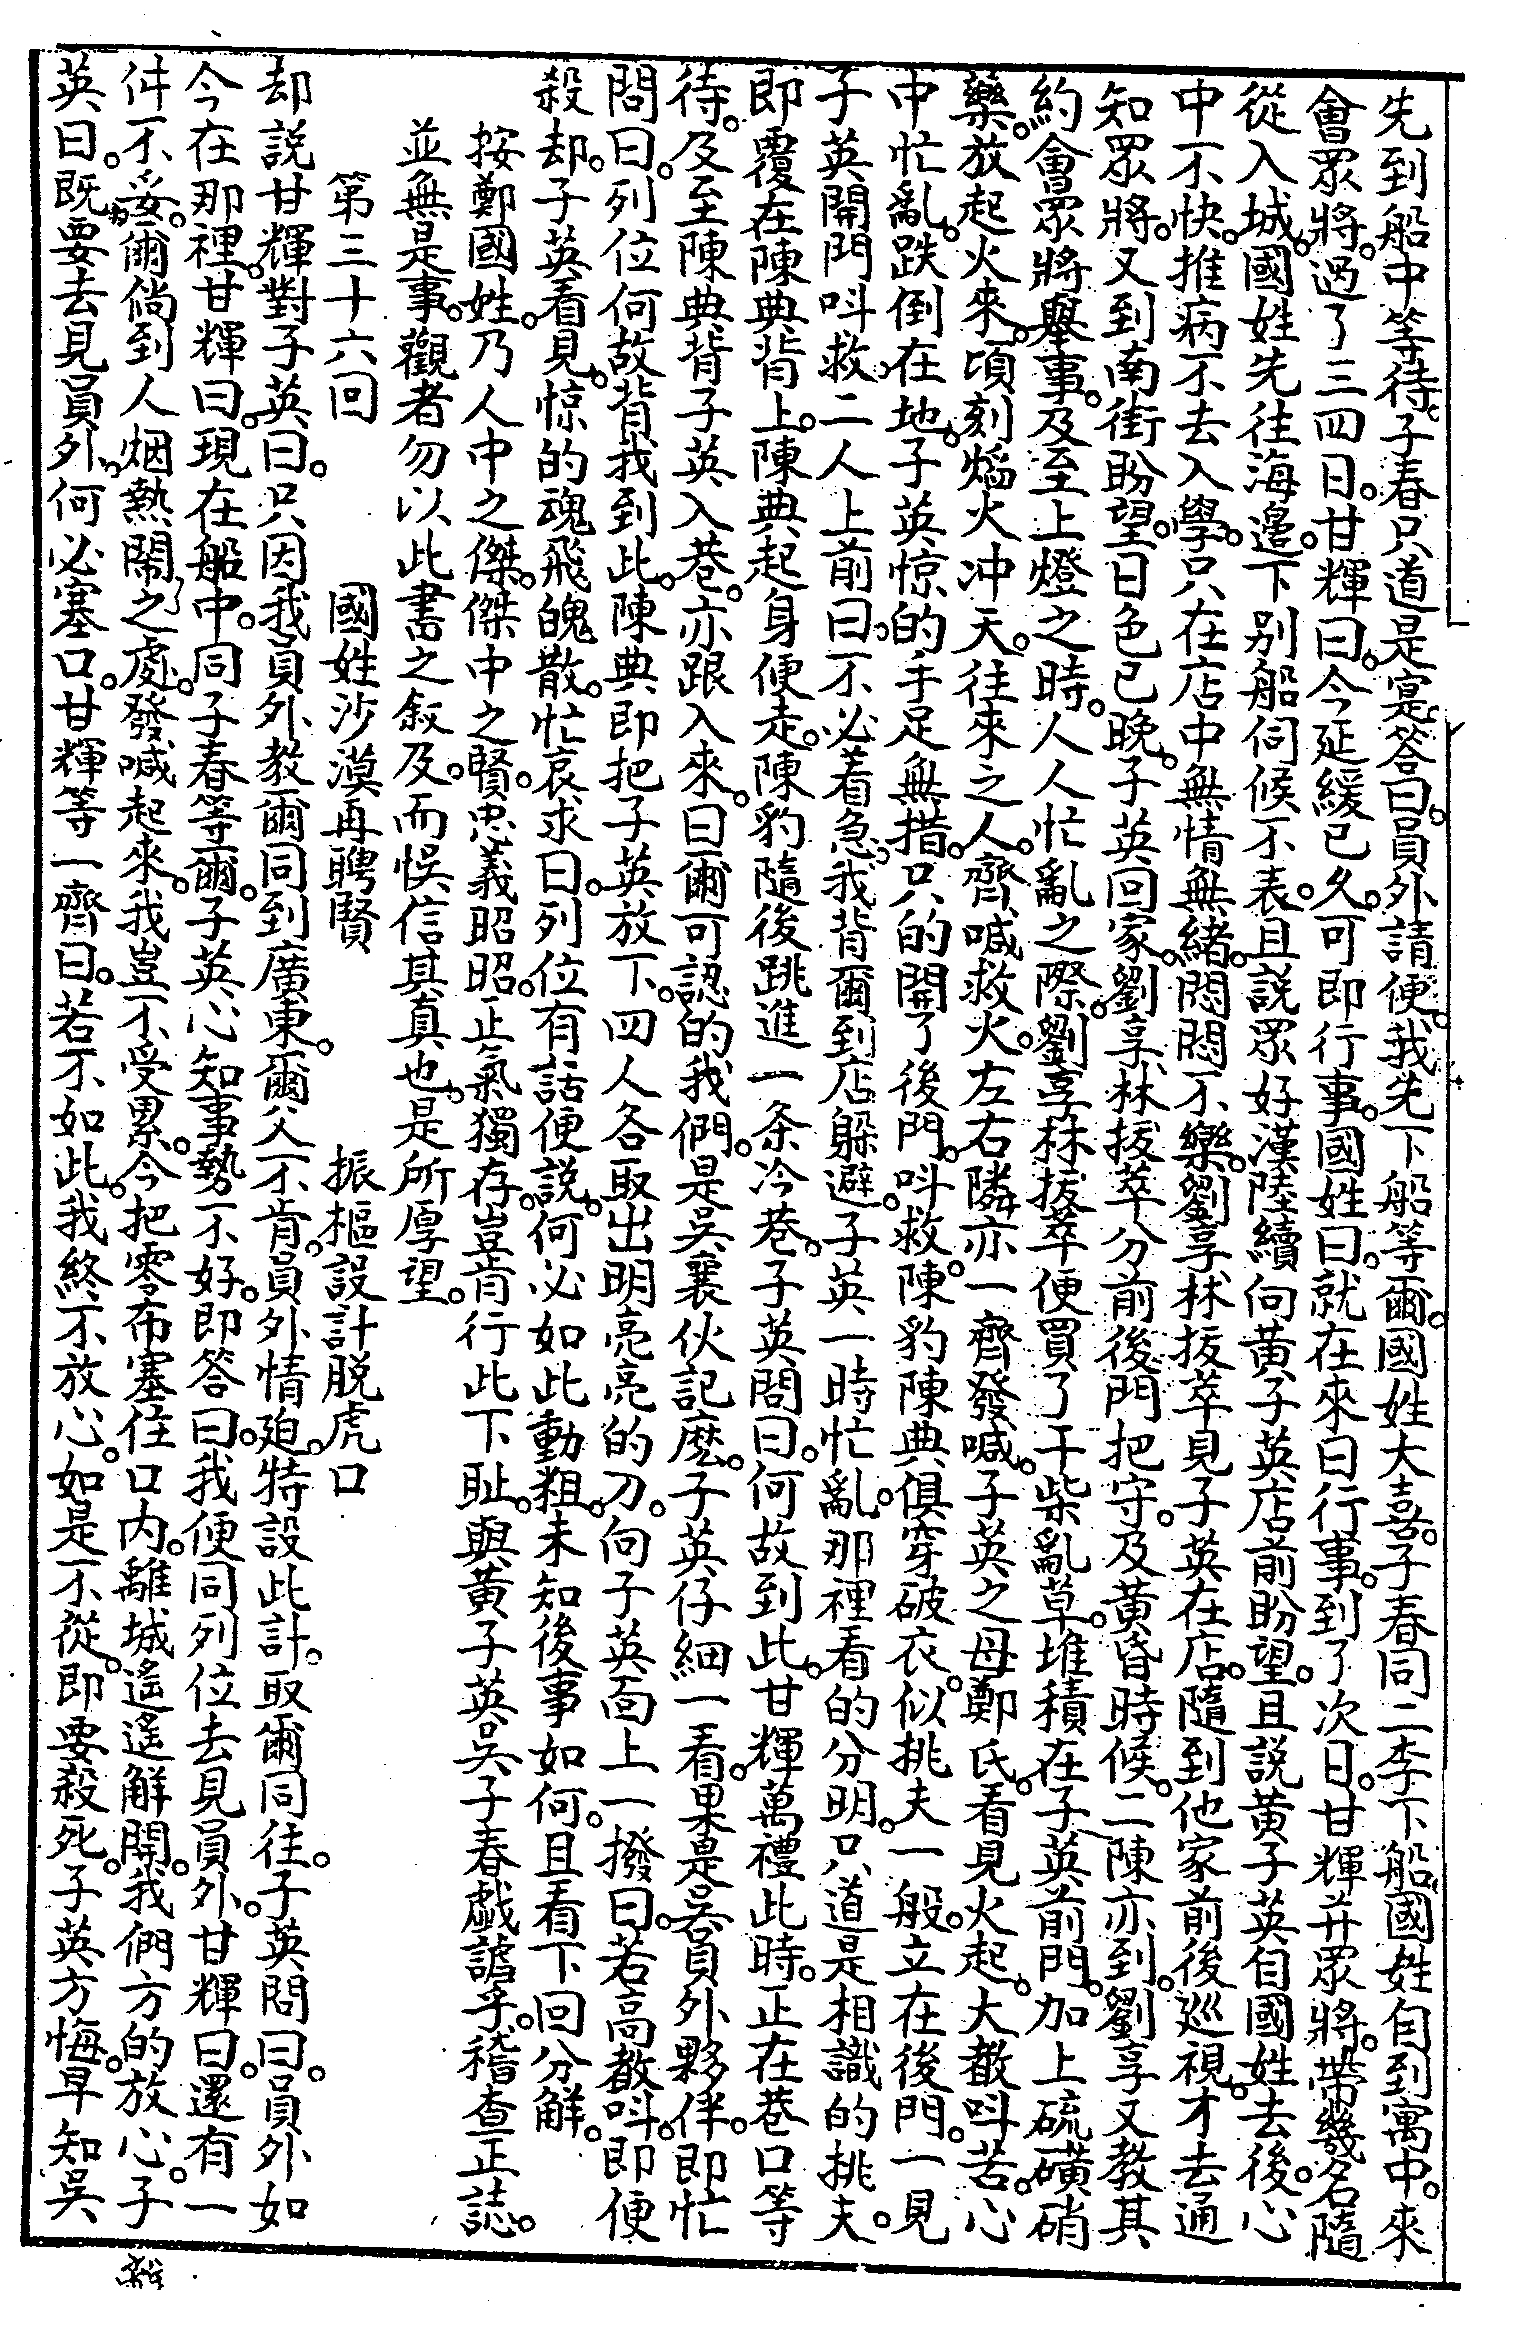 先到船中等待。子春只道是寔。答曰。員外請便。我先下船等爾。國姓大喜。子春同二李下船。國姓自到寓中。來
會眾將。過了三四日。甘輝曰。今延緩已久。可即行事。國姓曰。就在來日行事。到了次日。甘輝并眾將。帶幾名隨
從入城。國姓先往海邉。下别船伺候不表。且說眾好漢陸續向黃子英店前盼望。且說黃子英自國姓去後。心
中不快。推病不去入學。只在店中無情無緒。悶悶不樂。劉享林拔萃見子英在店。隨到他家前後巡視。才去通
知眾將。又到南街盼望。日色已晚。子英回家。劉享林拔萃分前後門把守。及黃昏時候。二陳亦到。劉享又教其
約會眾將舉事。及至上燈之時。人人忙亂之際。劉享林拔萃便買了干柴亂草。堆積在子英前門。加上硫磺硝
藥。放起火來。頃刻熖火冲天。往來之人。齊喊救火。左右隣亦一齊發喊。子英之母鄭氏。看見火起。大嗷呌苦。心
中忙亂。跌倒在地。子英惊的手足無措。只的開了後門。呌救。陳豹陳典。俱穿破衣。似挑夫一般。立在後門。一見
子英開門呌救。二人上前曰。不必着急。我背爾到店躲避。子英一時忙亂。那裡看的分明。只道是相識的挑夫。
即覆在陳典背上。陳典起身便走。陳豹隨後跳進一条冷巷。子英問曰。何故到此。甘輝萬禮此時。正在巷口等
待。及至陳典背子英入巷。亦跟入來。曰爾可認的我們。是吳襄伙記麽。子英仔細一看。果是吳員外夥伴。即忙
問曰。列位何故背我到此。陳典即把子英放下。四人各取出明亮亮的刀。向子英面上一撥曰。若高嗷呌。即便
殺却。子英看見。惊的魂飛魄散。忙哀求曰。列位有話便說。何必如此動粗。未知後事如何。且看下回分解。
按鄭國姓。乃人中之傑。傑中之賢。忠義昭昭。正氣獨存。豈肯行此下耻。與黃子英吳子春戯謔乎。稽查正誌。
並無是事。觀者勿以此書之叙及。而悞信其真也。是所厚望。
第三十六回　國姓沙漠再聘賢　振樞設計脱虎口
却說甘輝對子英曰。只因我員外教爾同到廣東。爾父不肯。員外情廹。特設此計。取爾同往。子英問曰。員外如
今在那裡。甘輝曰。現在船中。同子春等爾。子英心知事勢不好。即答曰。我便同列位去見員外。甘輝曰。還有一
件不妥。爾倘到人烟熱鬧之處。發喊起來。我豈不受累。今把零布塞住口内。離城遙遙解開。我們方的放心。子
英曰。既要去見員外。何必塞口。甘輝等一齊曰。若不如此。我終不放心。如是不從。即要殺死。子英方悔。早知吳